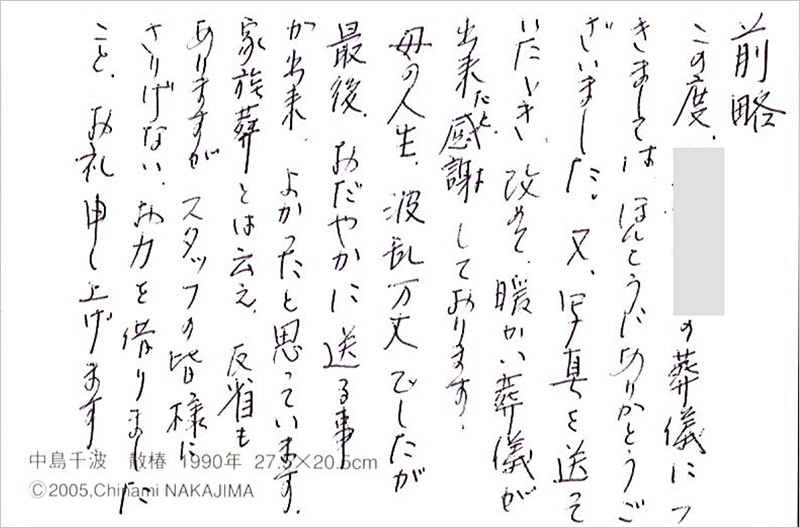 前略
この度、
の葬儀につ
きましては、ほんとうにありがとうご
ざいました。又、写真を送って
いただき、改めて、暖かい葬儀が
出来たと、感謝しております。
母の人生、波乱万丈でしたが
最後、おだやかに送る事
が出来、よかったと思っています。
家族葬とは云え、反省も
ありますが、スタッフの皆様に
さりげない、お力を借りました
こと、お礼申し上げます
中島千波 散椿 1990年 27.5×20.5cm
©2005,Chinami NAKAJIMA